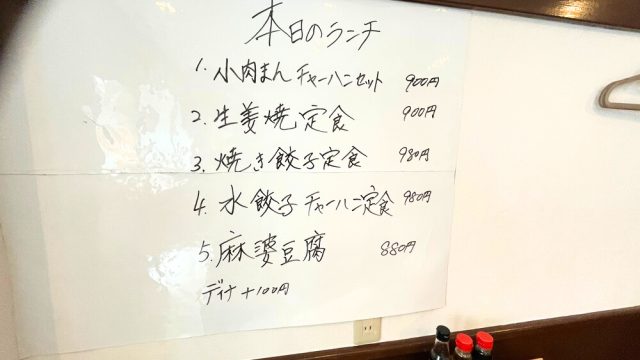 本日のランチ
1. 小肉まん チャーハンセット 900円
2. 生姜焼定食 900円
3. 焼き餃子定食 980円
4. 水餃子チャーハン定食 980円
5. 麻婆豆腐 880円
ディナ +100円